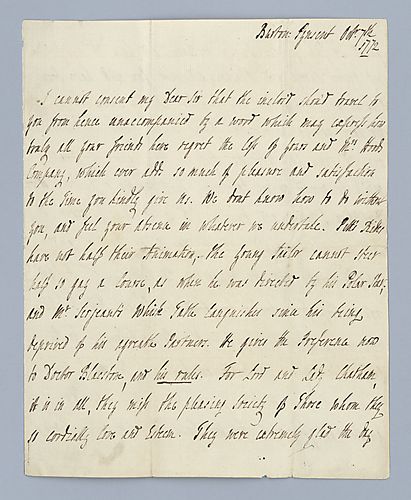 Burton: Pynsent Octr 7th
1772
I cannot consent my Dear Sir that the inclosed should travel to
you from hence unaccompanied by a word which may express how
truly all your friends here regret the loss of yours and Mrs Woods
Company, which ever add so much of pleasure and satisfaction
to the time you kindly give us. We dont know how to do without
you, and feel your absence in whatever we undertake. Pitts
have not half their Animation. The young Sailor cannot steer
half so gay a Course, as when he was directed by his Polar Star,
and Mr. Serjeants Whisk Table languishes since his being
deprived of his agreable Partners. He gives the Preference now
to Doctor Blackston, and his rules. For Lord and Lady Chatham,
it is in all, they miss the pleasing Society of Those whom they
so cordially love and Esteem. They were extremely glad the Day